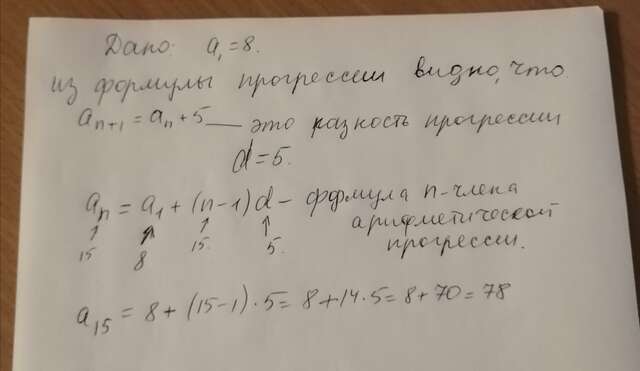 Дано: a₁=8.
из формулы прогрессии видно, что
aₙ₊₁ = aₙ + 5 — это разность прогрессии
d=5.
aₙ = a₁ + (n-1)d – формула n-члена
арифметической
прогрессии.
15 8 15. 5.
a₁₅ = 8 + (15-1)·5 = 8+14·5=8+70=78